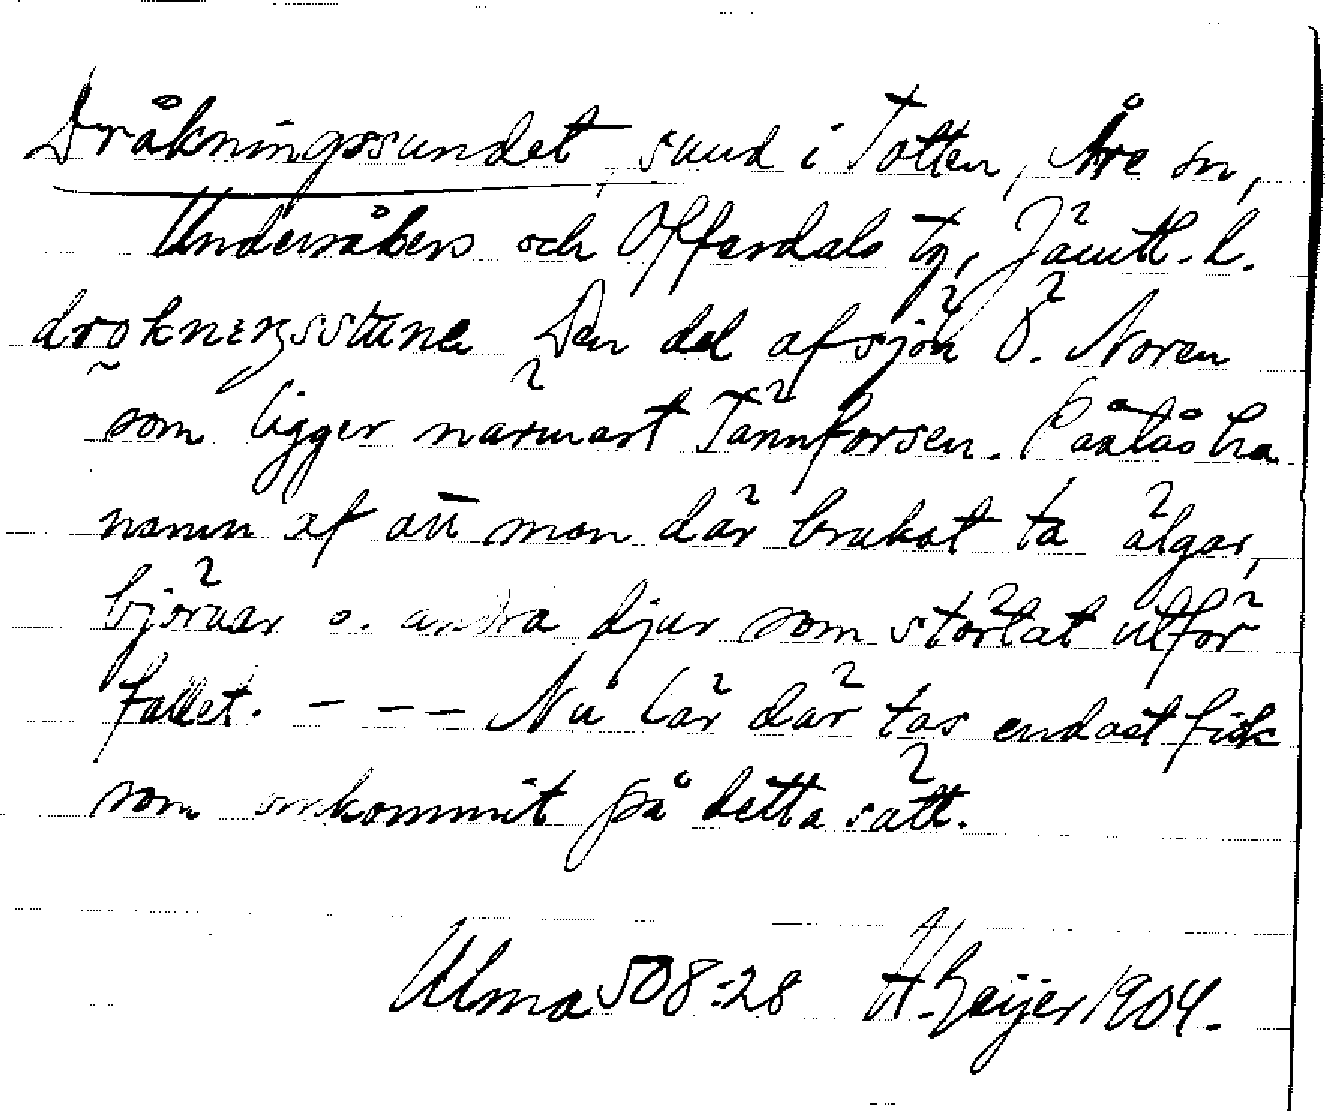 Dråkningssundet, sund i Totten, Åre sn,
Undersåkers och Offerdals tg, Jämtl. l.
Den del af sjön Ö. Noren
som ligger närmast Tännforsen. Påstås ha
namn af att man där brukat ta älgar,
björnar o. andra djur som störtat utför
fallet. - - - Nu lär där tas endast fisk
som omkommit på detta sätt.
Ulma 508:28 H. Geijer 1904.